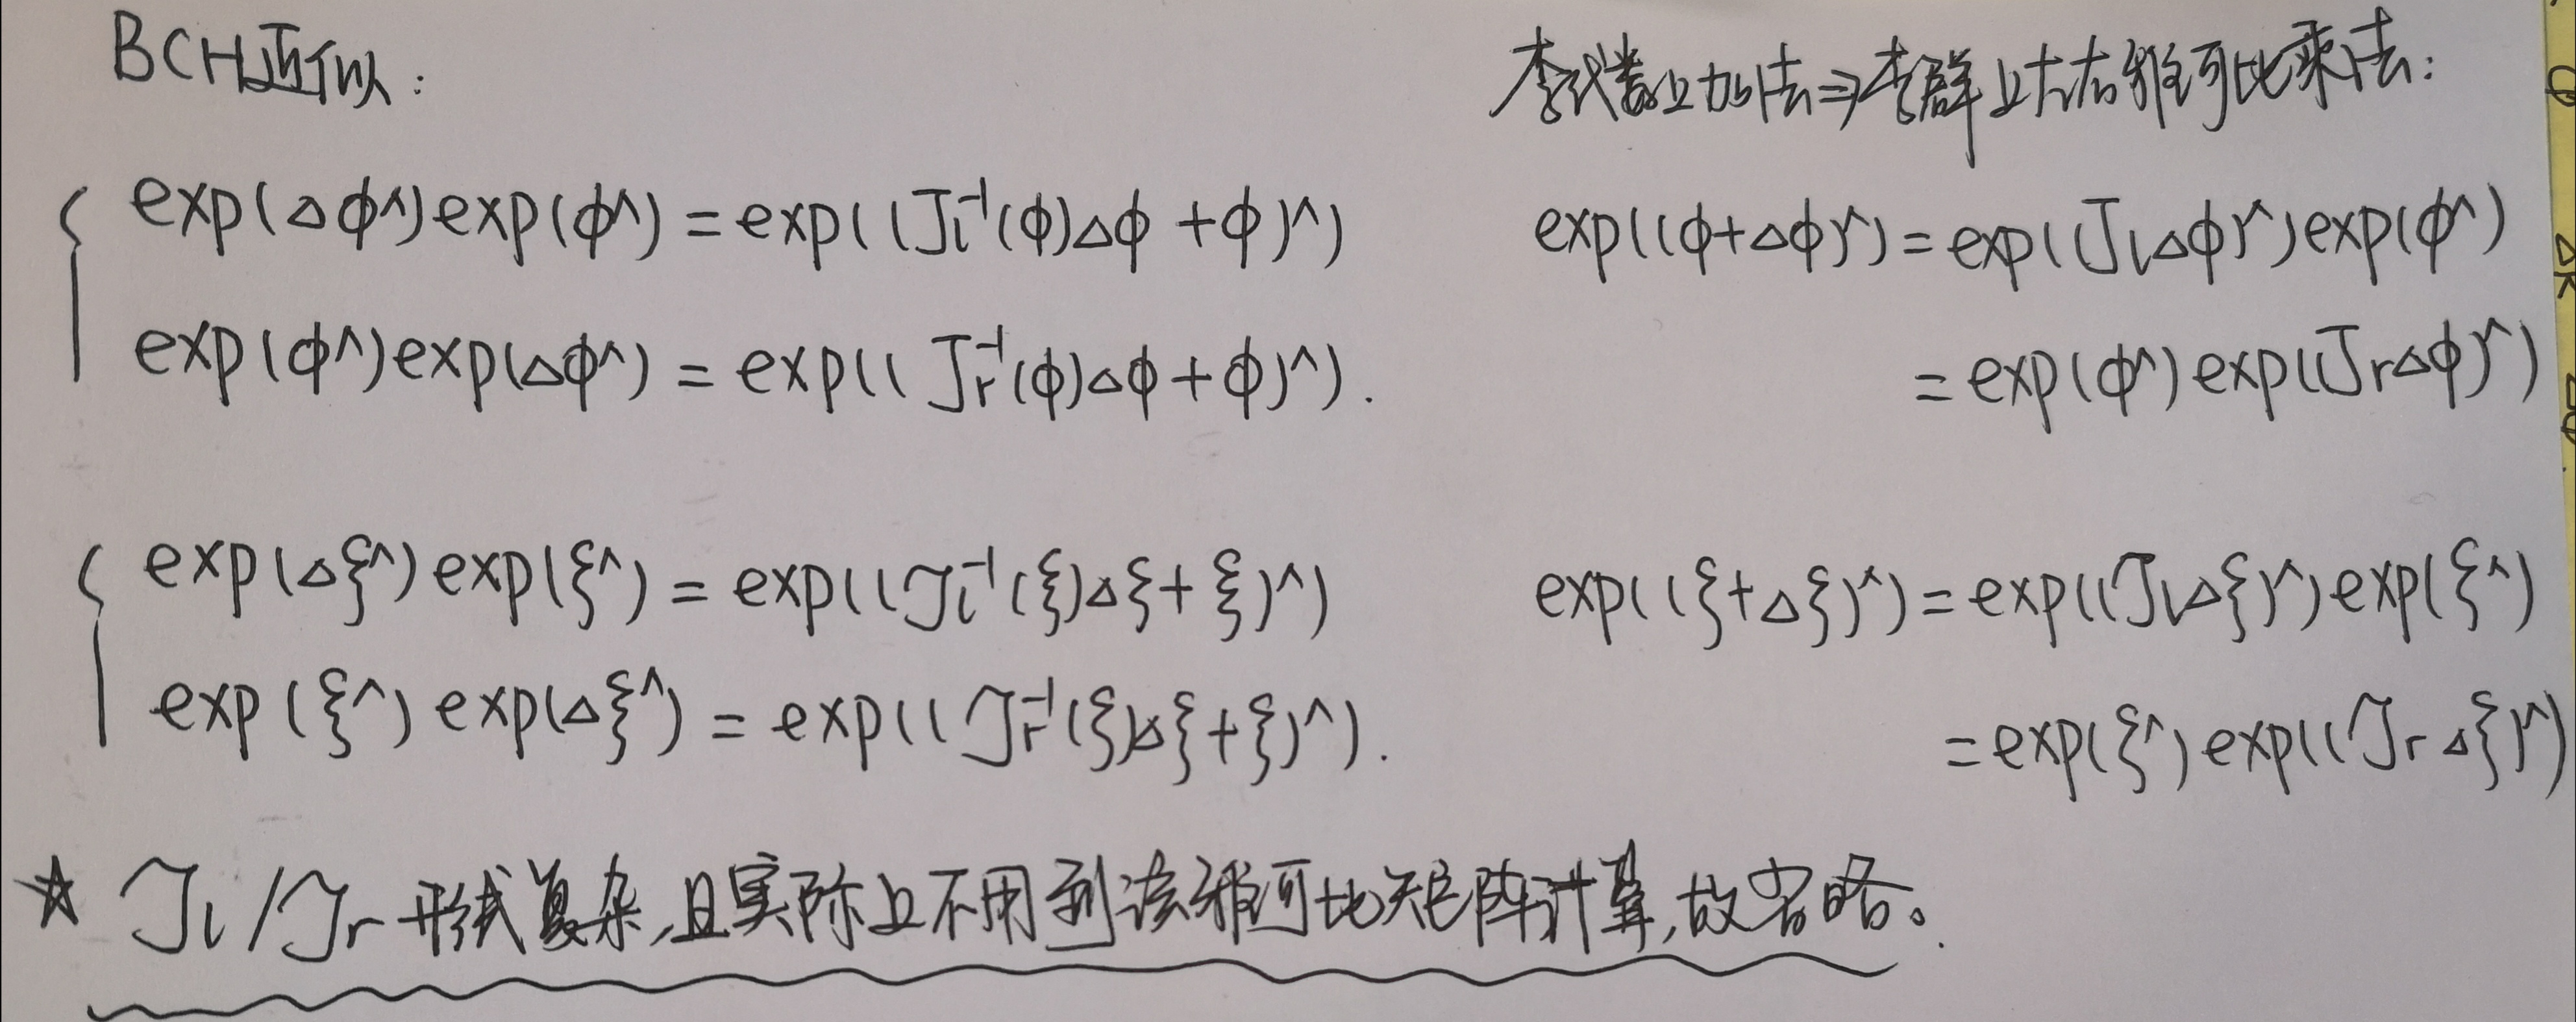 BCH近似:
李代数上加法⇒李群上左右雅可比乘法:
exp(Δφ^)exp(φ^) = exp((Jl⁻¹(φ)Δφ + φ)^)
exp((φ+Δφ)^) = exp((JlΔφ)^)exp(φ^)
exp(φ^)exp(Δφ^) = exp((Jr⁻¹(φ)Δφ + φ)^).
= exp(φ^)exp((JrΔφ)^)
exp(Δξ^)exp(ξ^) = exp((𝒥l⁻¹(ξ)Δξ + ξ)^)
exp((ξ+Δξ)^) = exp((𝒥lΔξ)^)exp(ξ^)
exp(ξ^)exp(Δξ^) = exp((𝒥r⁻¹(ξ)Δξ + ξ)^).
= exp(ξ^)exp((𝒥rΔξ)^)
☆ 𝒥l/𝒥r 形式复杂,且实际上不用到该雅可比矩阵计算,故省略。